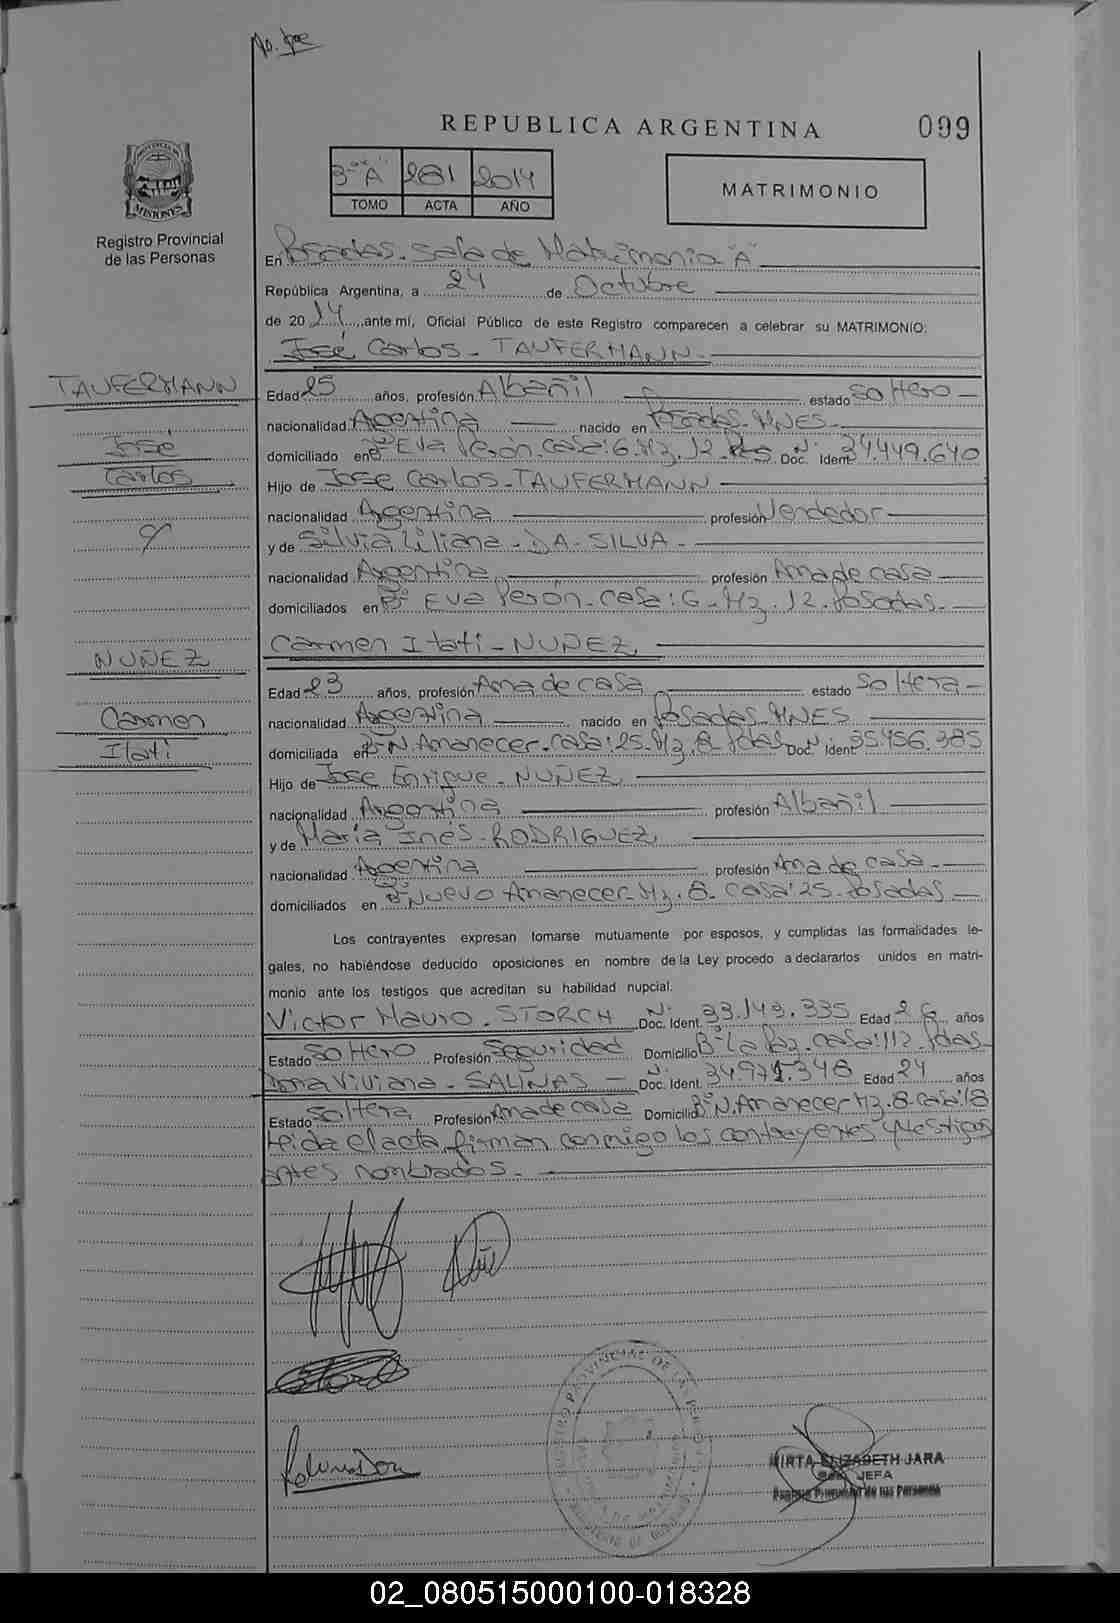 REPUBLICA ARGENTINA
099
PROVINCIA DE
MISIONES
Registro Provincial
de las Personas
3º "A" 281 2014
TOMO ACTA AÑO
MATRIMONIO
En Posadas. Sala de Matrimonio "A"
República Argentina, a 24 de Octubre
de 2014, ante mí, Oficial Público de este Registro comparecen a celebrar su MATRIMONIO:
José Carlos - TAUFERMANN -
TAUFERMANN
José
Carlos
Edad 25 años, profesión Albañil estado Soltero
nacionalidad Argentina nacido en Posadas. MNES.
domiciliado en Bº Eva Perón. Casa: 6. Mz. 12. Doc. Ident. Nº: 34.449.640
Hijo de Jose Carlos - TAUFERMANN
nacionalidad Argentina profesión Vendedor
y de Silvia Liliana - DA - SILVA -
nacionalidad Argentina profesión Ama de casa
domiciliados en Bº Eva Perón - Casa: 6 - Mz. 12. Posadas.
Carmen Itati - NUÑEZ
NUÑEZ
Carmen
Itatí
Edad 23 años, profesión Ama de casa estado Soltera
nacionalidad Argentina nacido en Posadas. MNES
domiciliada en Bº N. Amanecer. Casa: 25. Mz. 8. Pdas Doc. Ident. Nº: 35.456.385
Hijo de Jose Enrique - NUÑEZ
nacionalidad Argentina profesión Albañil
y de María Inés - RODRIGUEZ
nacionalidad Argentina profesión Ama de casa
domiciliados en Bº Nuevo Amanecer - Mz. 8. Casa: 25. Posadas
Los contrayentes expresan tomarse mutuamente por esposos, y cumplidas las formalidades le-
gales, no habiéndose deducido oposiciones en nombre de la Ley procedo a declararlos unidos en matri-
monio ante los testigos que acreditan su habilidad nupcial.
Victor Mauro - STORCH Doc. Ident. Nº: 33.143.335 Edad 26 años
Estado Soltero Profesión Seguridad Domicilio Bº La Paz. Casa: 112. Pdas
Viviana - SALINAS - Doc. Ident. Nº: 34.971.348 Edad 24 años
Estado Soltera Profesión Ama de casa Domicilio Bº N. Amanecer Mz. 8. Casa: 18
Leida el acta, firman conmigo los contrayentes y testigos
antes nombrados.
MIRTA ELIZABETH JARA
JEFA
Registro Provincial de las Personas
02_080515000100-018328